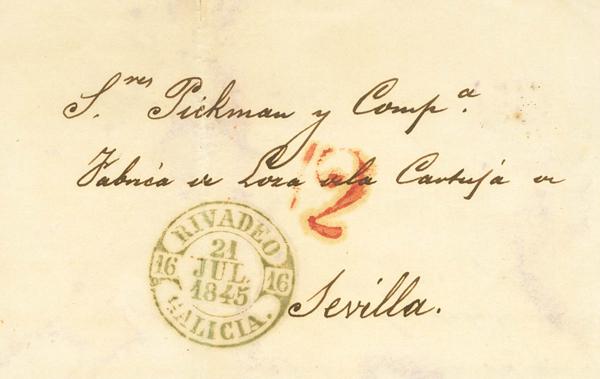 S.res Pickman y Comp.a
Fabrica de Loza de la Cartuja de
12
RIVADEO
21
JUL.
1845
16 16
GALICIA.
Sevilla.